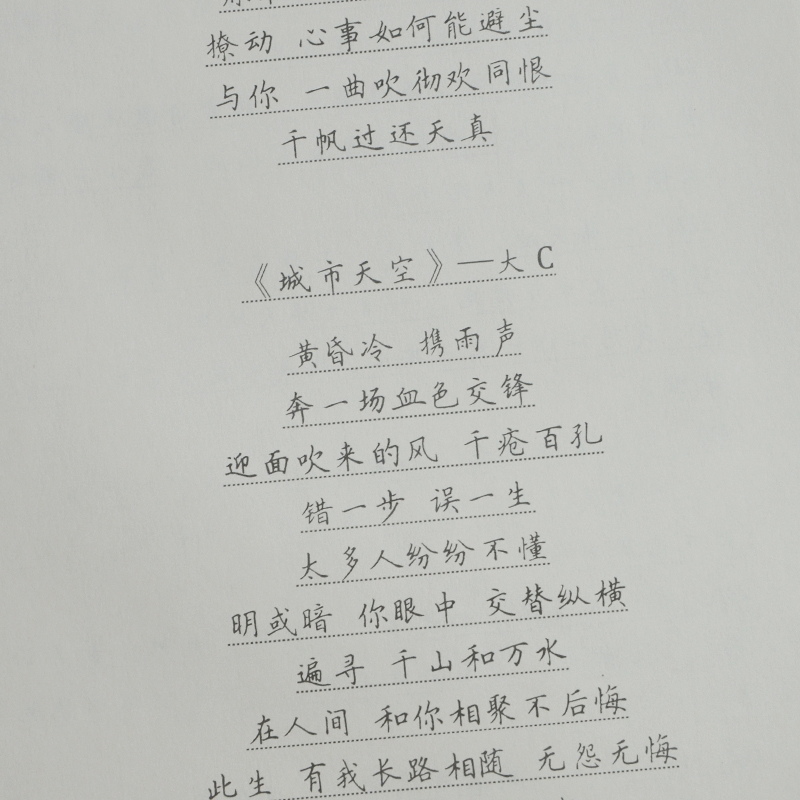 撩动 心事如何能避尘
与你 一曲吹彻欢同恨
千帆过还天真
《城市天空》—大C
黄昏冷 携雨声
奔一场血色交锋
迎面吹来的风 千疮百孔
错一步 误一生
太多人纷纷不懂
明或暗 你眼中 交替纵横
遍寻 千山和万水
在人间 和你相聚不后悔
此生 有我长路相随 无怨无悔